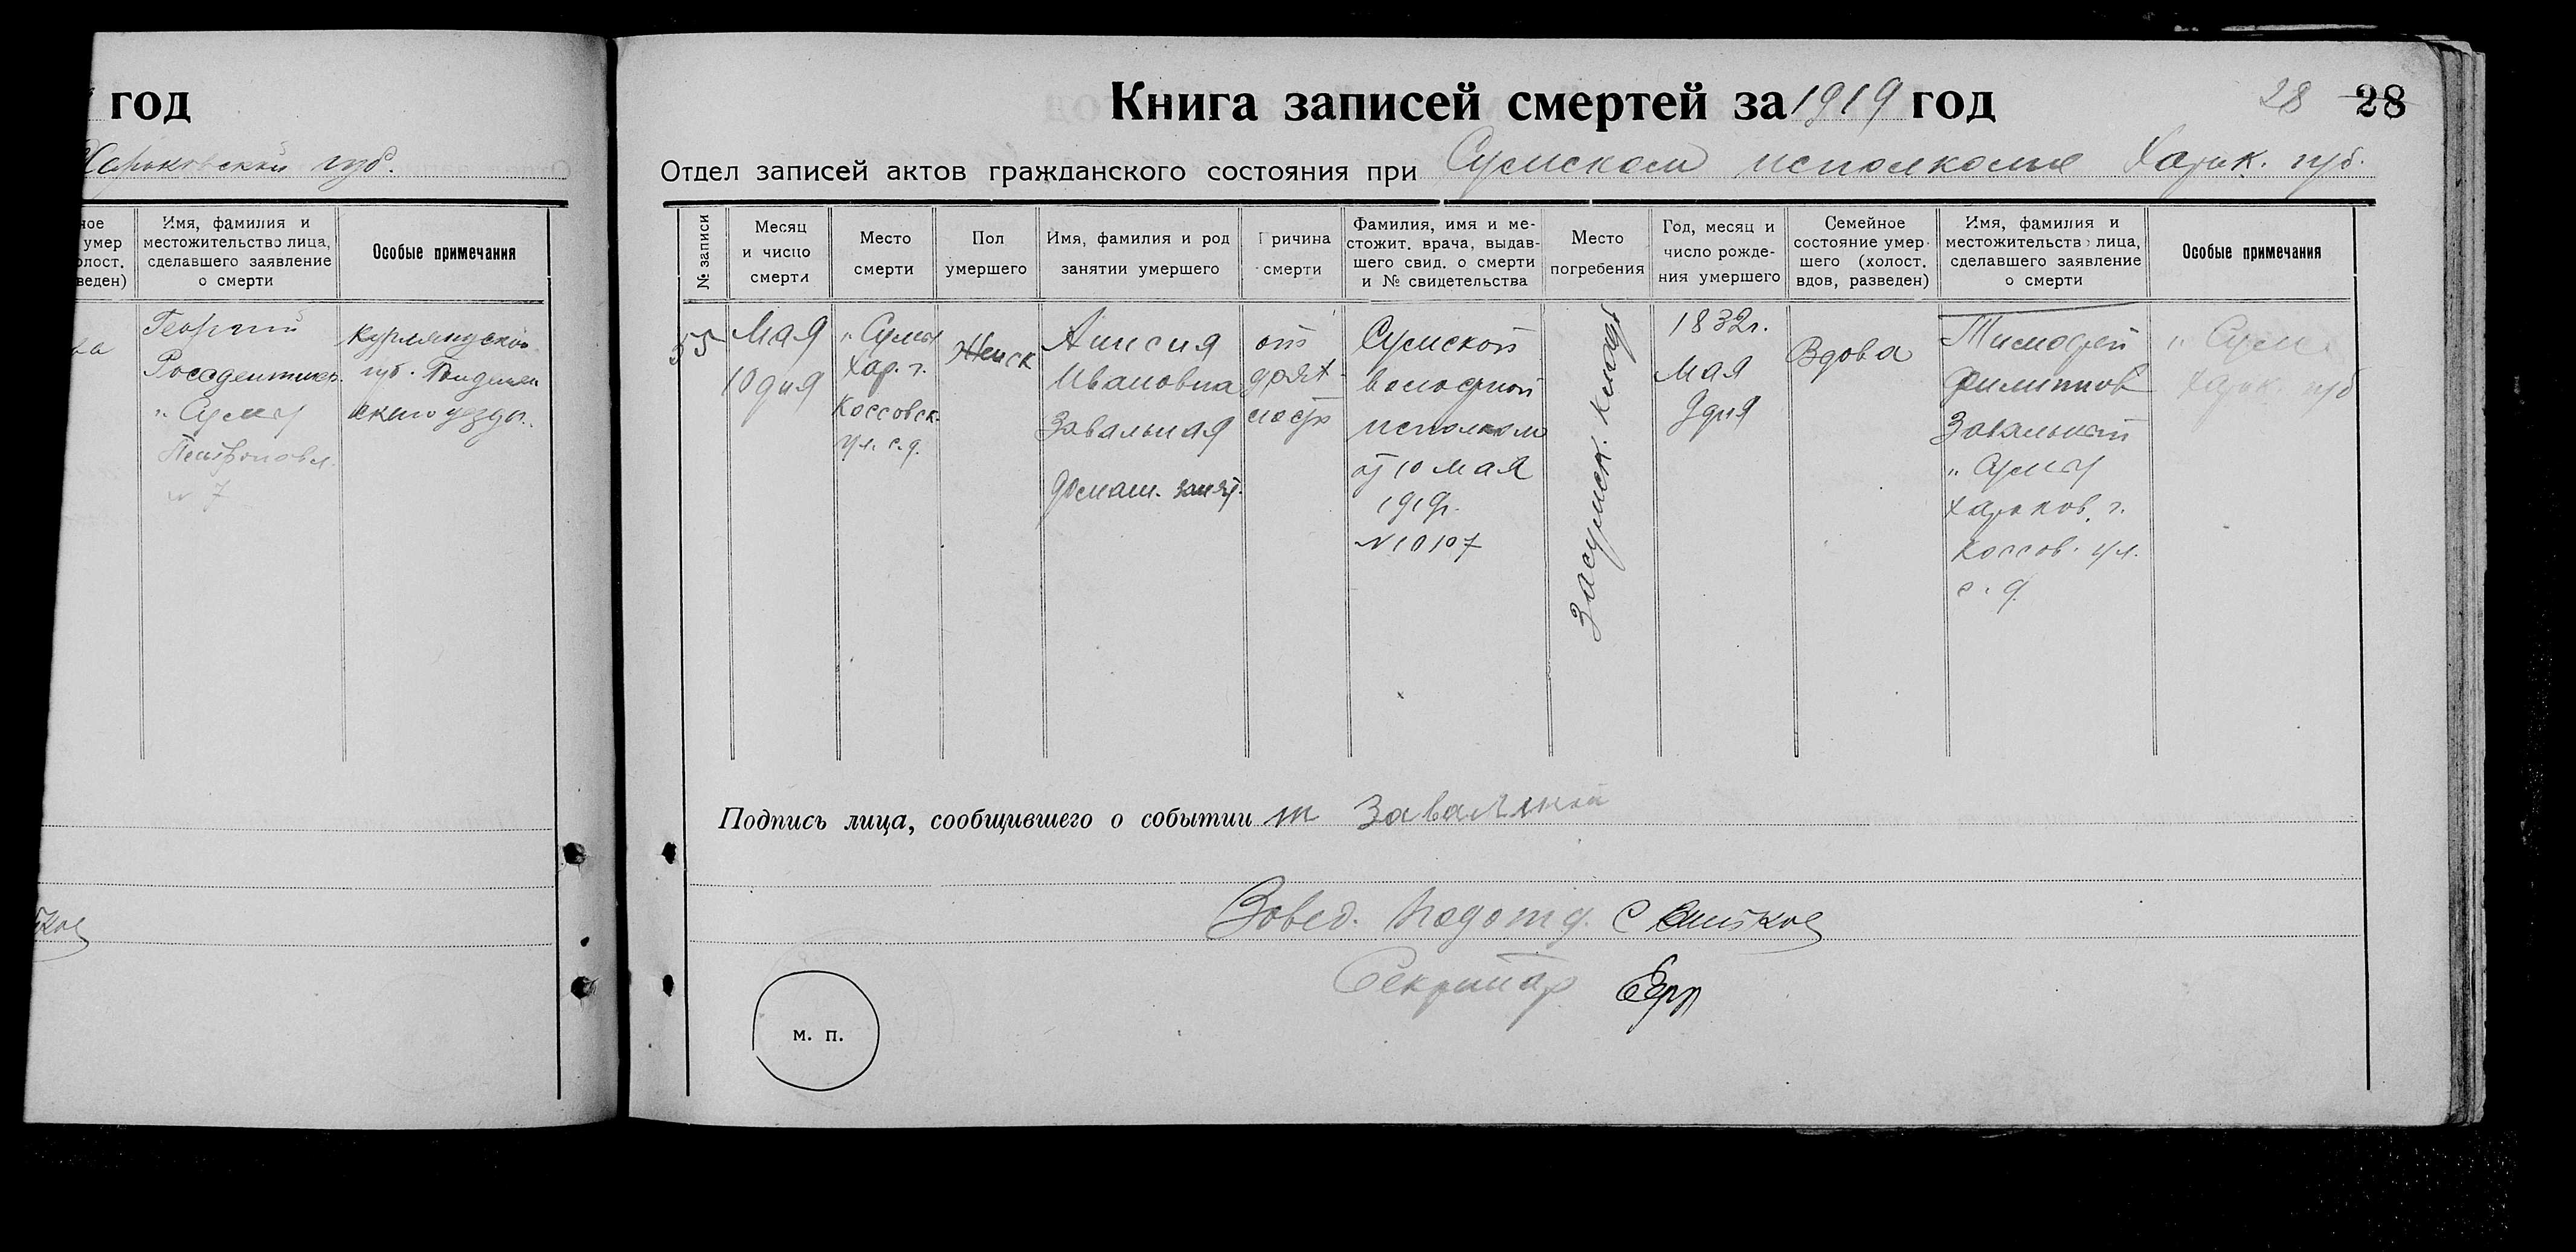 год
Харьковской губ.
Имя, фамилия и местожительство лица, сделавшего заявление о смерти
Особые примечания
Георгий
" Сумы
№ 7
Курляндской
губ.
уезда.
Книга записей смертей за 1919 год
28 28
Отдел записей актов гражданского состояния при Сумском исполкоме Харьк. губ.
№ записи
Месяц и число смерти
Место смерти
Пол умершего
Имя, фамилия и род занятии умершего
Причина смерти
Фамилия, имя и местожит. врача, выдавшего свид. о смерти и № свидетельства
Место погребения
Год, месяц и число рождения умершего
Семейное состояние умершего (холост. вдов, разведен)
Имя, фамилия и местожительство лица, сделавшего заявление о смерти
Особые примечания
55
Мая
10 дня
" Сумы
Хар. г.
Коссовск.
ул. с. д.
Женск
Анисия
Ивановна
Завальная
домаш. занят.
от
дряхлости
Сумской
исполком
от 10 мая
1919г.
№ 10107
Засумск. кладб
1832г.
Мая
9 дня
Вдова
Тимофей
Филиппов
Завальной
" Сумы
Харьков. г.
Коссов. ул.
с. д.
" Сумы
Харьк. губ
Подпись лица, сообщившего о событии т Завальной
Завед. Подотд.
Секретар
М. П.